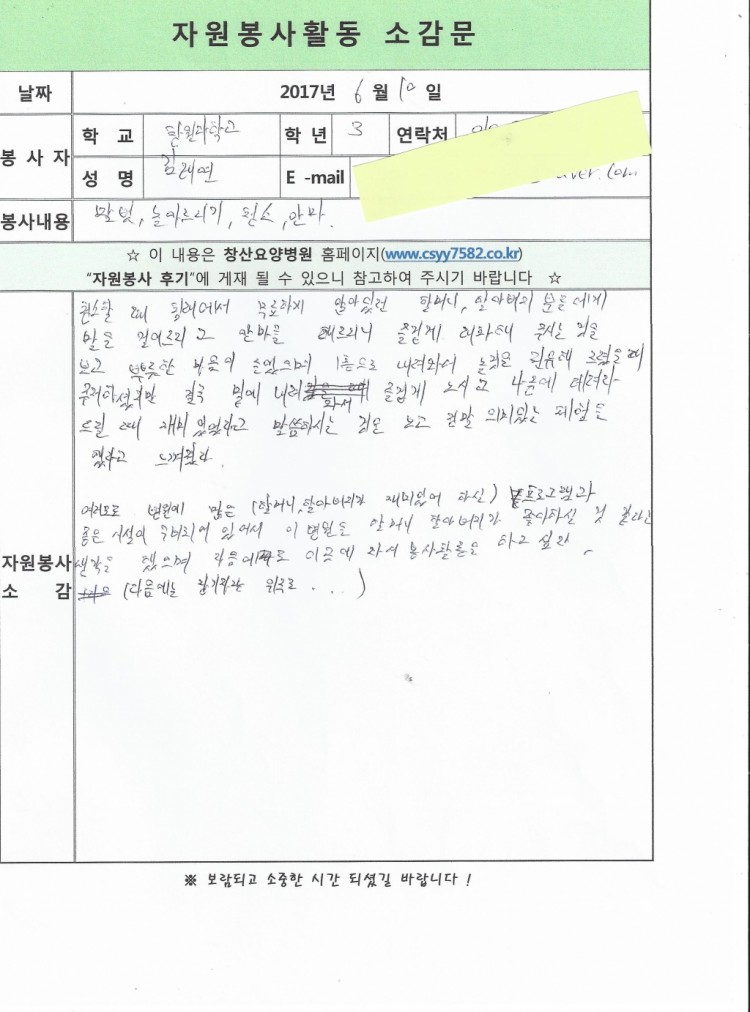 자원봉사활동 소감문
날짜 2017년 6월 10일
봉사자 학교 학년 3 연락처
성명 E-mail
봉사내용 말벗, 놀아드리기, 청소, 안마.
☆ 이 내용은 창산요양병원 홈페이지(www.csyy7582.co.kr)
"자원봉사 후기"에 게재 될 수 있으니 참고하여 주시기 바랍니다 ☆
청소할 때 무료하게 앉아있던 할머니, 할아버지 분들에게
말을 걸어드리고 안마를 해드리니 즐겁게 대화해 주시는 것을
보고 뿌듯한 마음이 들었으며 1층으로 내려와서 놀것을 권유해 드렸을 때
결국 밑에 내려와서 즐겁게 노시고 나중에 데려다
드릴 때 재미있었다고 말씀하시는 것을 보고 정말 의미있는 체험을
했다고 느껴졌다.
여러모로 병원에 많은 (할머니, 할아버지가 재미있어 하신) 프로그램과
좋은 시설이 구비되어 있어서 이 병원을 할머니 할아버지가 좋아하신 것 같다는
생각을 했으며 다음에도 이곳에 와서 봉사활동을 하고 싶다.
(다음에는 위주로 . . . )
자원봉사
소감
※ 보람되고 소중한 시간 되셨길 바랍니다 !